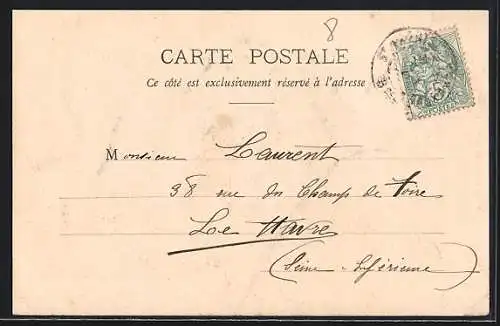 8
CARTE POSTALE
Ce côté est exclusivement réservé à l'adresse
Monsieur Laurent
38 rue du Champ de Foire
Le Havre
(Seine-Inférieure)